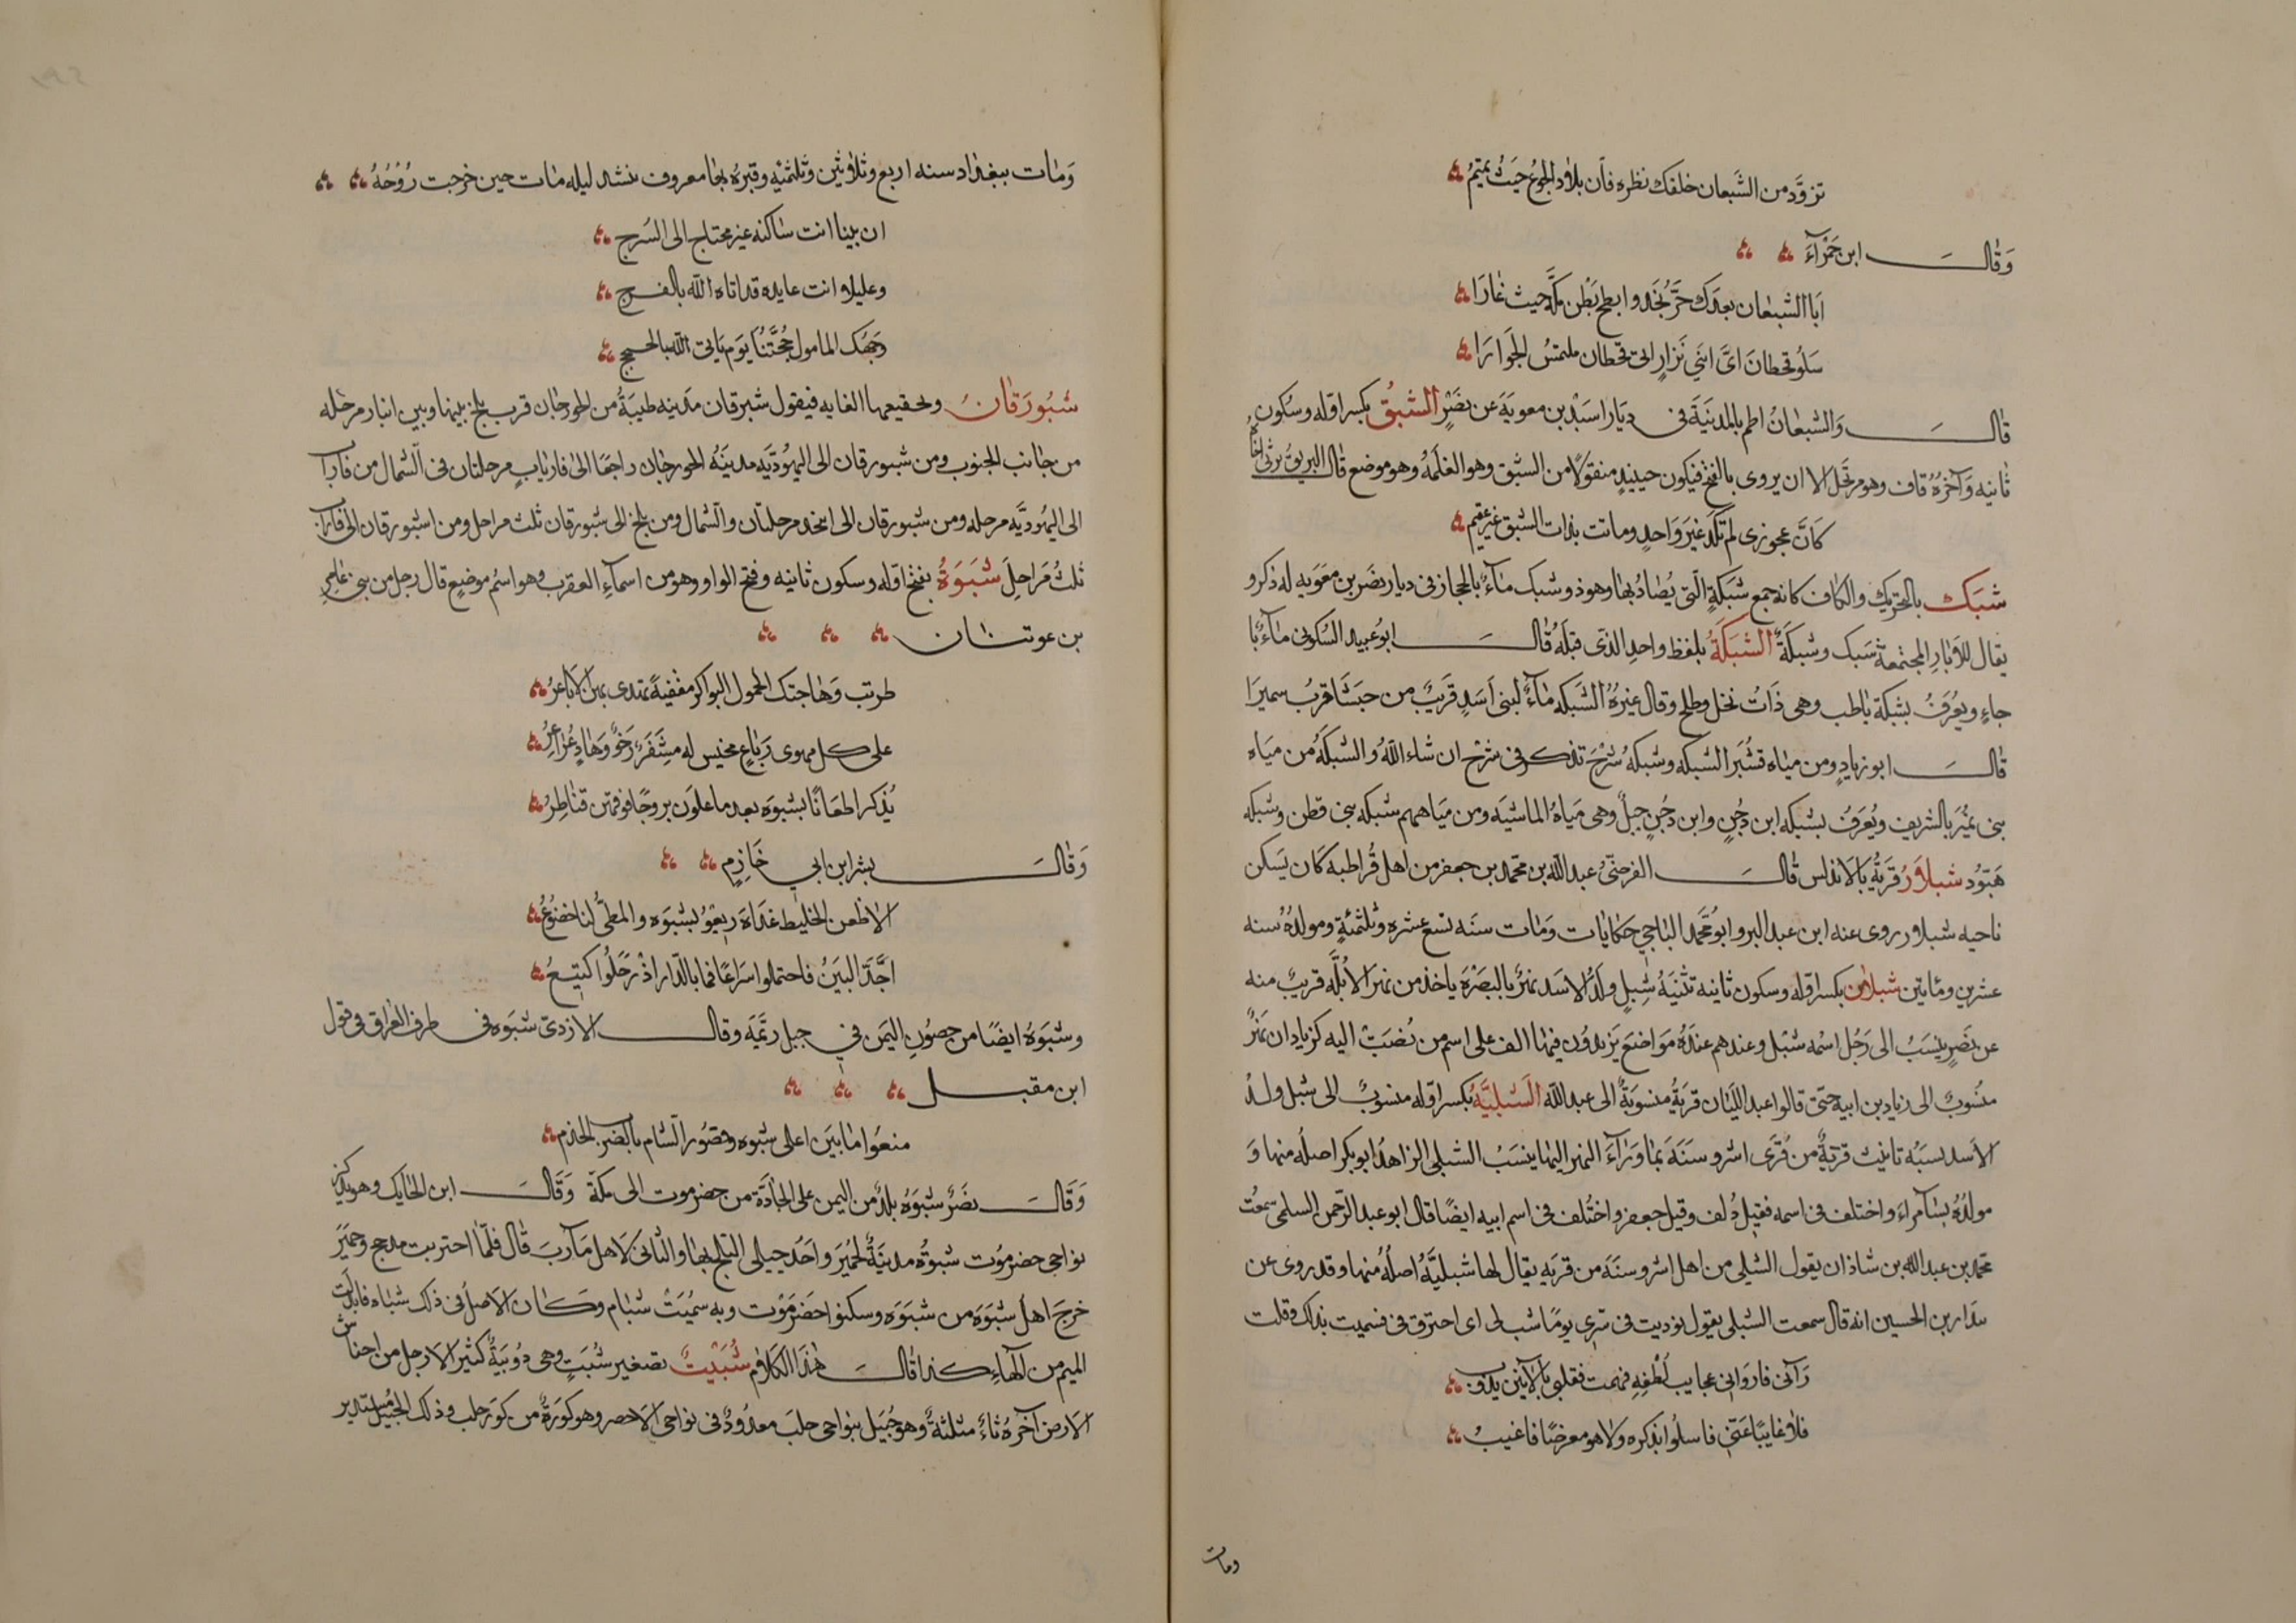 تزوَّد من الشبعان خلفك نظره فان بلاد الجوع حيث تميم
وَقالَ ابن حَمْراءَ
ابا الشبعان بعدك حَرَّ نجد وابطح بَطن مكّه حيث غارَا
سَلوا قحطان اىَّ ابنَي نَزارٍ اتى قحطان ملتمسُ الجوَارَا
قالَ وَالشبعانُ اطم بالمدينَة فى ديَار اسَيْد بن معويَة عن نصَرٍ الشبقُ بكسر اوّله وسُكون
ثانيه وَآخرُهُ قاف وهو مرتجَل الا ان يروى بالفتح فيكون حينيذٍ منقولاً من الشبق وهو الغلمهُ وهو موضع قال البريقُ يرثى اخاهُ
كَانَّ عجوزى لم تلد غيرَ وَاحدٍ وماتت بذات الشبق غيرَ عقيم
شبَك بالتحريك والكاف كانه جمع شبَكةٍ الّتى يُصَادُ بها وهو ذو شبك مَاءٌ بالحجاز فى ديار نصَر بن معَويه له ذكر و
يقال للاَبار المجتمعة شَبك وشبكَةٌ الشبَكَةُ بلفظ واحد الذى قبلَهُ قالَ ابوُ عبيد السَكونى مَاءٌ با
جاءٍ ويعُرَفُ بشبكة ياطب وهى ذَاتُ نخل وطلح وقال غيرهُ الشَبكه مَاءٌ لبنى اَسَدٍ قريبٌ من حبَشَا قربُ سميرَا
قالَ ابو زيادٍ ومن مياه قشَُير الشبكه وشبكهُ شَرْحَ تذكر فى شرَح ان شاء اللهُ والشبكَةُ من ميَاه
بنى نمُيَر بالشريف ويُعرَفُ بشبكه ابن دُخنٍ وابن دُخنٍ جبلٌ وهى مَياهُ الماشيَه ومن ميَاههم شبكه بنى قطن وشبكه
هَبّوُد شبلاوَرُ قريَةٌ بالاندلس قالَ الفرضىّ عبد الله بن محمّد بن جعفر من اهل قُراطبه كَان يَسَكن
ناحيه شبلاور روى عنه ابن عبد البر وابوُ محُمَّد الباجي حكايَات وَمات سنَه تسَع عشره وثلثمئَةٍ ومولدُهُ سنه
عشرين ومايتين شبلان بكسر اوّله وسكون ثانيه تثنيَةُ شِبلٍ ولدُ الاسَد نهرٌ بالبصَرَة ياخذ من نهر الاُبُلَّه قريبٌ منه
عن نصَرٍ ينسَبُ الى رَجُل اسْمه شَبل وعندهم عندَهُ مَواضعَ يزَيدوُن فيها الف على اسم من نُصَبَتْ اليه كزيادان نهَرٌ
منسَوبٌ الى زياد بن ابيه حتى قالوا عبد اللّيان قريَةٌ منسوُبَةٌ الى عبد الله الشبليَّهُ بكسر اوّله منسوبٌ الى شبل ولد
الاَسَد نسبَه تانيث قريَةٌ من قُرَى اشروسنَةَ بما وَرَاءَ النهر اليها ينسَبُ الشبلى الزاهدُ ابو بكر اصلهُ منها وَ
مولدُهُ بسَامراءَ واختلف فى اسمه فقيل دُلف وقيل جعفر واختُلف فى اسم ابيه ايضًا قال ابو عبد الرّحمن السلمى سمعتُ
محمّد بن عبد الله بن شاذان يقول الشبلى من اهل اشروسنَةَ من قريَه يقال لها شبليَّهُ اصلهُ منها وقد روى عن
بندار بن الحسين انه قال سمعت الشبلى يقول نوديت فى سرى يومًا شب لى اى احترق فى فسميت بذلك وقلت
رَآنى فاروَانى عجايب لُطفِهِ فهمت فقلبى بالاَنين يذوب
فلا غايبًا عَنّى فاسلُوا بذكره ولا هو معرضًا فاغيبُ
ومات
وَمات ببغداد سنه اربع وثلاثين وثلثمئَةٍ وقبرُهُ بها معروف ينشد ليله مات حين خرجت رُوحُهُ
ان بيتا انت ساكنه غير محتاج الى السُرج
وعليلا انت عايده قد اتاه الله بالفرج
وَجهك المامول حُجَّتُنا يوَم ياتى الله بالحجج
شبُورَقانُ فيقول شبرقان مدينه طيبَةٌ من الجوزجان قرب بلخ بينها وبين انبار مرحله
من جانب الجنوب ومن شبورقان الى اليهوديّه مدينَهُ الجوزجان راجعًا الى فاريابٍ مرحلتان فى الشمال من فاريا
الى اليهُوديَّه مرحله ومن شبورقان الى انخذ مرحلتان والشمال ومن بلخ الى شبورقان ثلث مراحل ومن اشبورقان الى فارياب
ثلثُ مَراحِلَ شَبَوَةُ بفتح اوّله وسكون ثانيه وفتح الواو وهو من اسماءِ العقرب وهو اسُم موضع قال رجل من بنى عامر
بن عوتنان
طربت وَهَاجتك الحمول البواكر مقفيةً تحدى بهن الاباعرُ
على كل مهوى رَباعٍ مخيس له مِشَفَرٌ رَخوٌ وَهَادٍ عُراعرُ
يُذكر اظعَانًا بشبوَه بعد ما علوَن بروجًا فوقهن قناطِرُ
وَقالَ بشر ابن ابي خَازِمٍ
الا ظعن الخليط غدَاةَ ريعوُا بشبوَه والمطىُّ لنا خضوُعُ
اَجَدَّ البَينُ فاحتملوا سرَاعًا فما بالدّار اذْ رَحَلُوا كتيعُ
وشبَوَةُ ايضًا من حصُونِ اليمَن في جبل ريمَة وقال الازدى شبوَه فى طرف العراق فى قول
ابن مقبل
منعَوا ما بيَن اعلى شبَوه وقصوُر الشام بالضَرب الخذم
وَقالَ نصَرٌ شبوَهُ بلدٌ من اليمن على الجادّة من حضرموت الى مكة وَقالَ ابن الحايك وهو يذكر
نواحى حضرموُت شبوُه مدينَةٌ لحُميَر واحَدُ جبلى الثلج بها والثانى لاَهل مَآربَ قال فلمّا احتربت مذحج وحِميَر
خرجَ اهل شبوَة من شبَوَه وسكنوا حضرَمَوت وبه سُميَتْ شبَام وكان الاَصلُ فى ذلك شباه فابدلت
الميم من الهَاءِ كذا قالَ هٰذَا الكلام شبُيَثٌ تصغير شبُثٍ وهى دوُيبَةٌ كثير الارجل من احناش
الاَرض آخرُهُ ثَاءٌ مثلثةٌ وهو جُبَيل بنواحى حلبَ معدوُدٌ فى نواحى الاحص وهو كوُرَةٌ من كوَر حلب وذلك الجبُيل مستدير